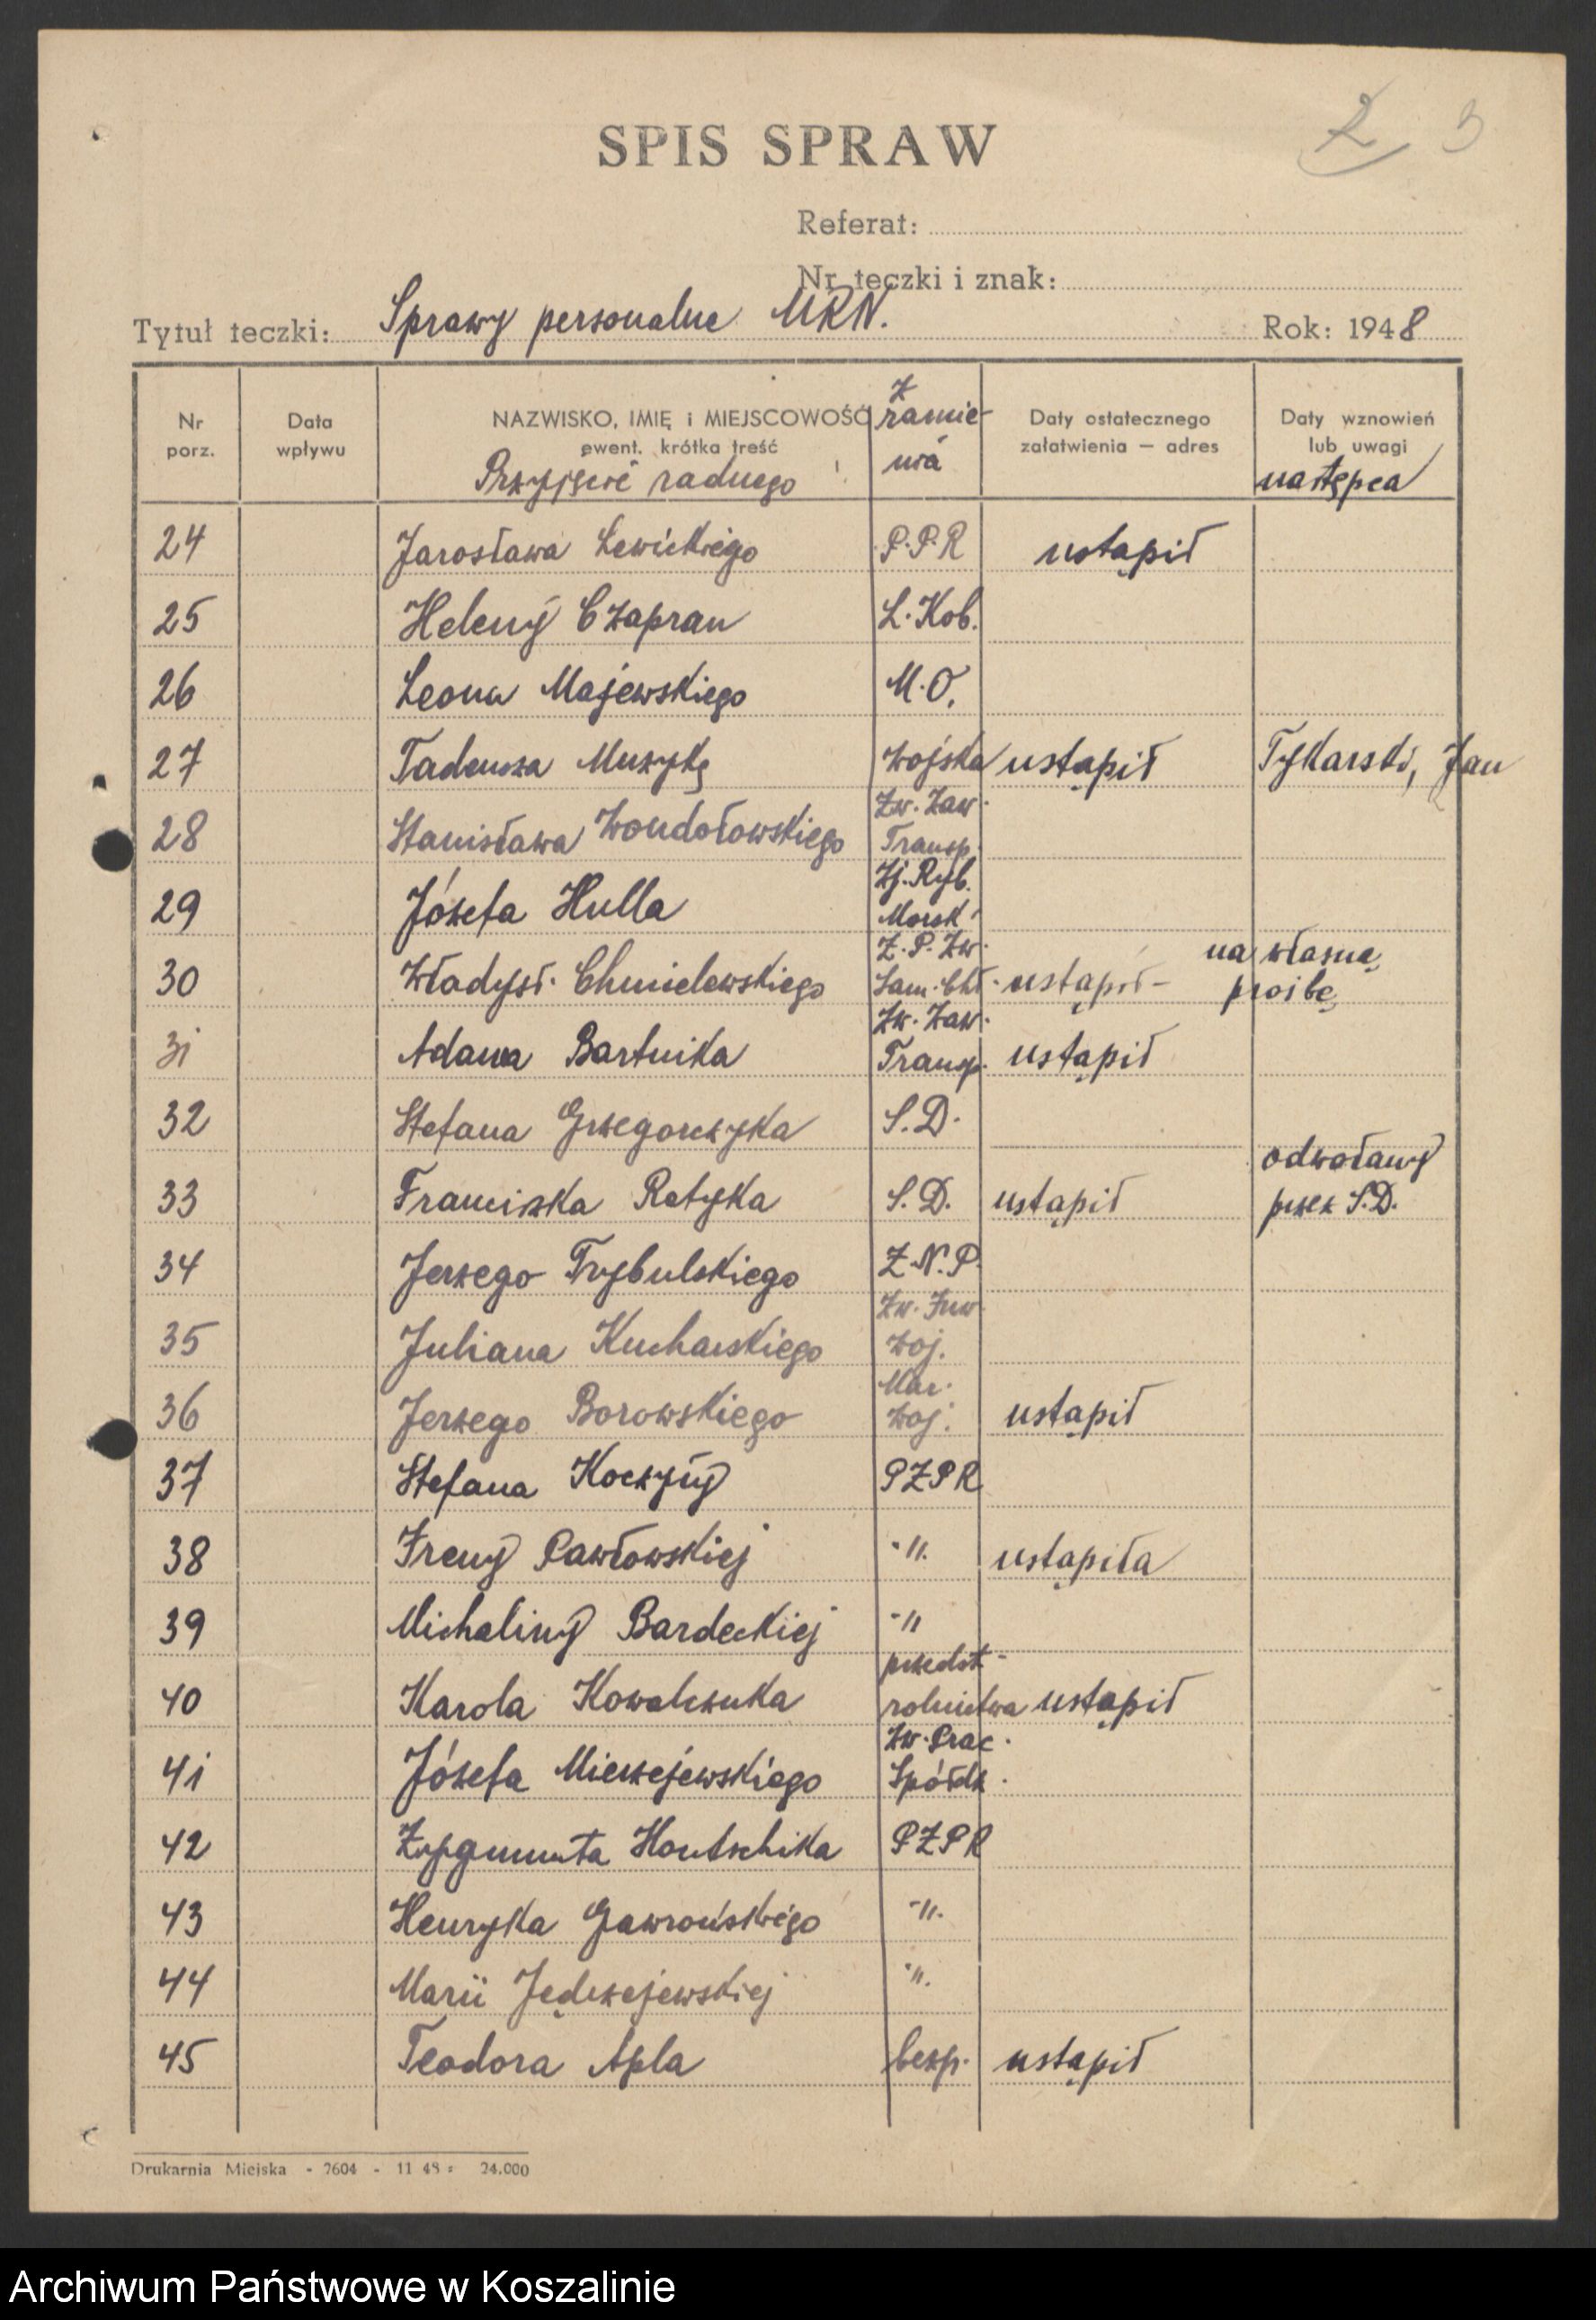 2 3
SPIS SPRAW
Referat:
Nr teczki i znak:
Tytuł teczki: Sprawy personalne MRN. Rok: 1948
Nr porz. Data wpływu NAZWISKO, IMIĘ i MIEJSCOWOŚĆ ewent. krótka treść Przyjęcie radnego z ramienia Daty ostatecznego załatwienia — adres Daty wznowień lub uwagi następca
24 Jarosława Lewickiego P.P.R ustąpił
25 Heleny Czapran L. Kob.
26 Leona Majewskiego M.O.
27 Tadeusza Muzykę wojska ustąpił Tykarski, Jan
28 Stanisława Wondołowskiego Zw. Zaw. Transp.
29 Józefa Hulla Zj. Ryb. Morsk.
30 Władysł. Chmielewskiego Z.P. Zw. Sam. Chł. ustąpił - na własną prośbę
31 Adama Bartnika Zw. Zaw. Transp. ustąpił
32 Stefana Grzegorczyka S.D.
33 Franciszka Ratyka S.D. ustąpił odwołany przez S.D.
34 Jerzego Trybulskiego Z.N.P.
35 Juliana Kucharskiego Zw. Inw. Woj.
36 Jerzego Borowskiego Mar. Woj. ustąpił
37 Stefana Koczyły PZPR
38 Ireny Pawłowskiej -"- ustąpiła
39 Michaliny Bardeckiej -"
40 Karola Kowalczuka przedst. rolnictwa ustąpił
41 Józefa Mierzejewskiego Zw. Prac. Spółdz.
42 Zygmunta Hontschika PZPR
43 Henryka Gawrońskiego -"-
44 Marii Jędrzejewskiej -"-
45 Teodora Apla bezp. ustąpił
Drukarnia Miejska - 2604 - 11 48 : 24.000
Archiwum Państwowe w Koszalinie